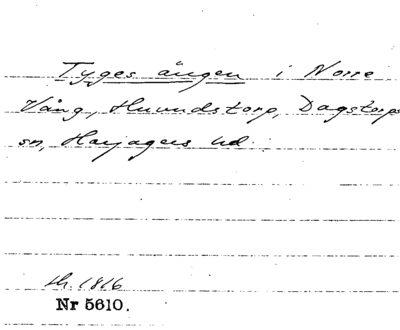 Tyges ängen i Norre
Vång, Huvudstorp, Dagstorps
sn, Harjagers hd.
sk. 1816
Nr 5610.